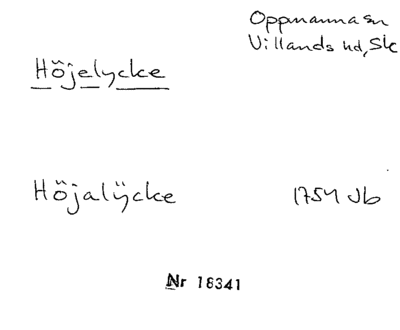 Oppmanna sn
Villands hd, Sk
Höjelycke
Höjalÿcke 1754 Jb
Nr 18341